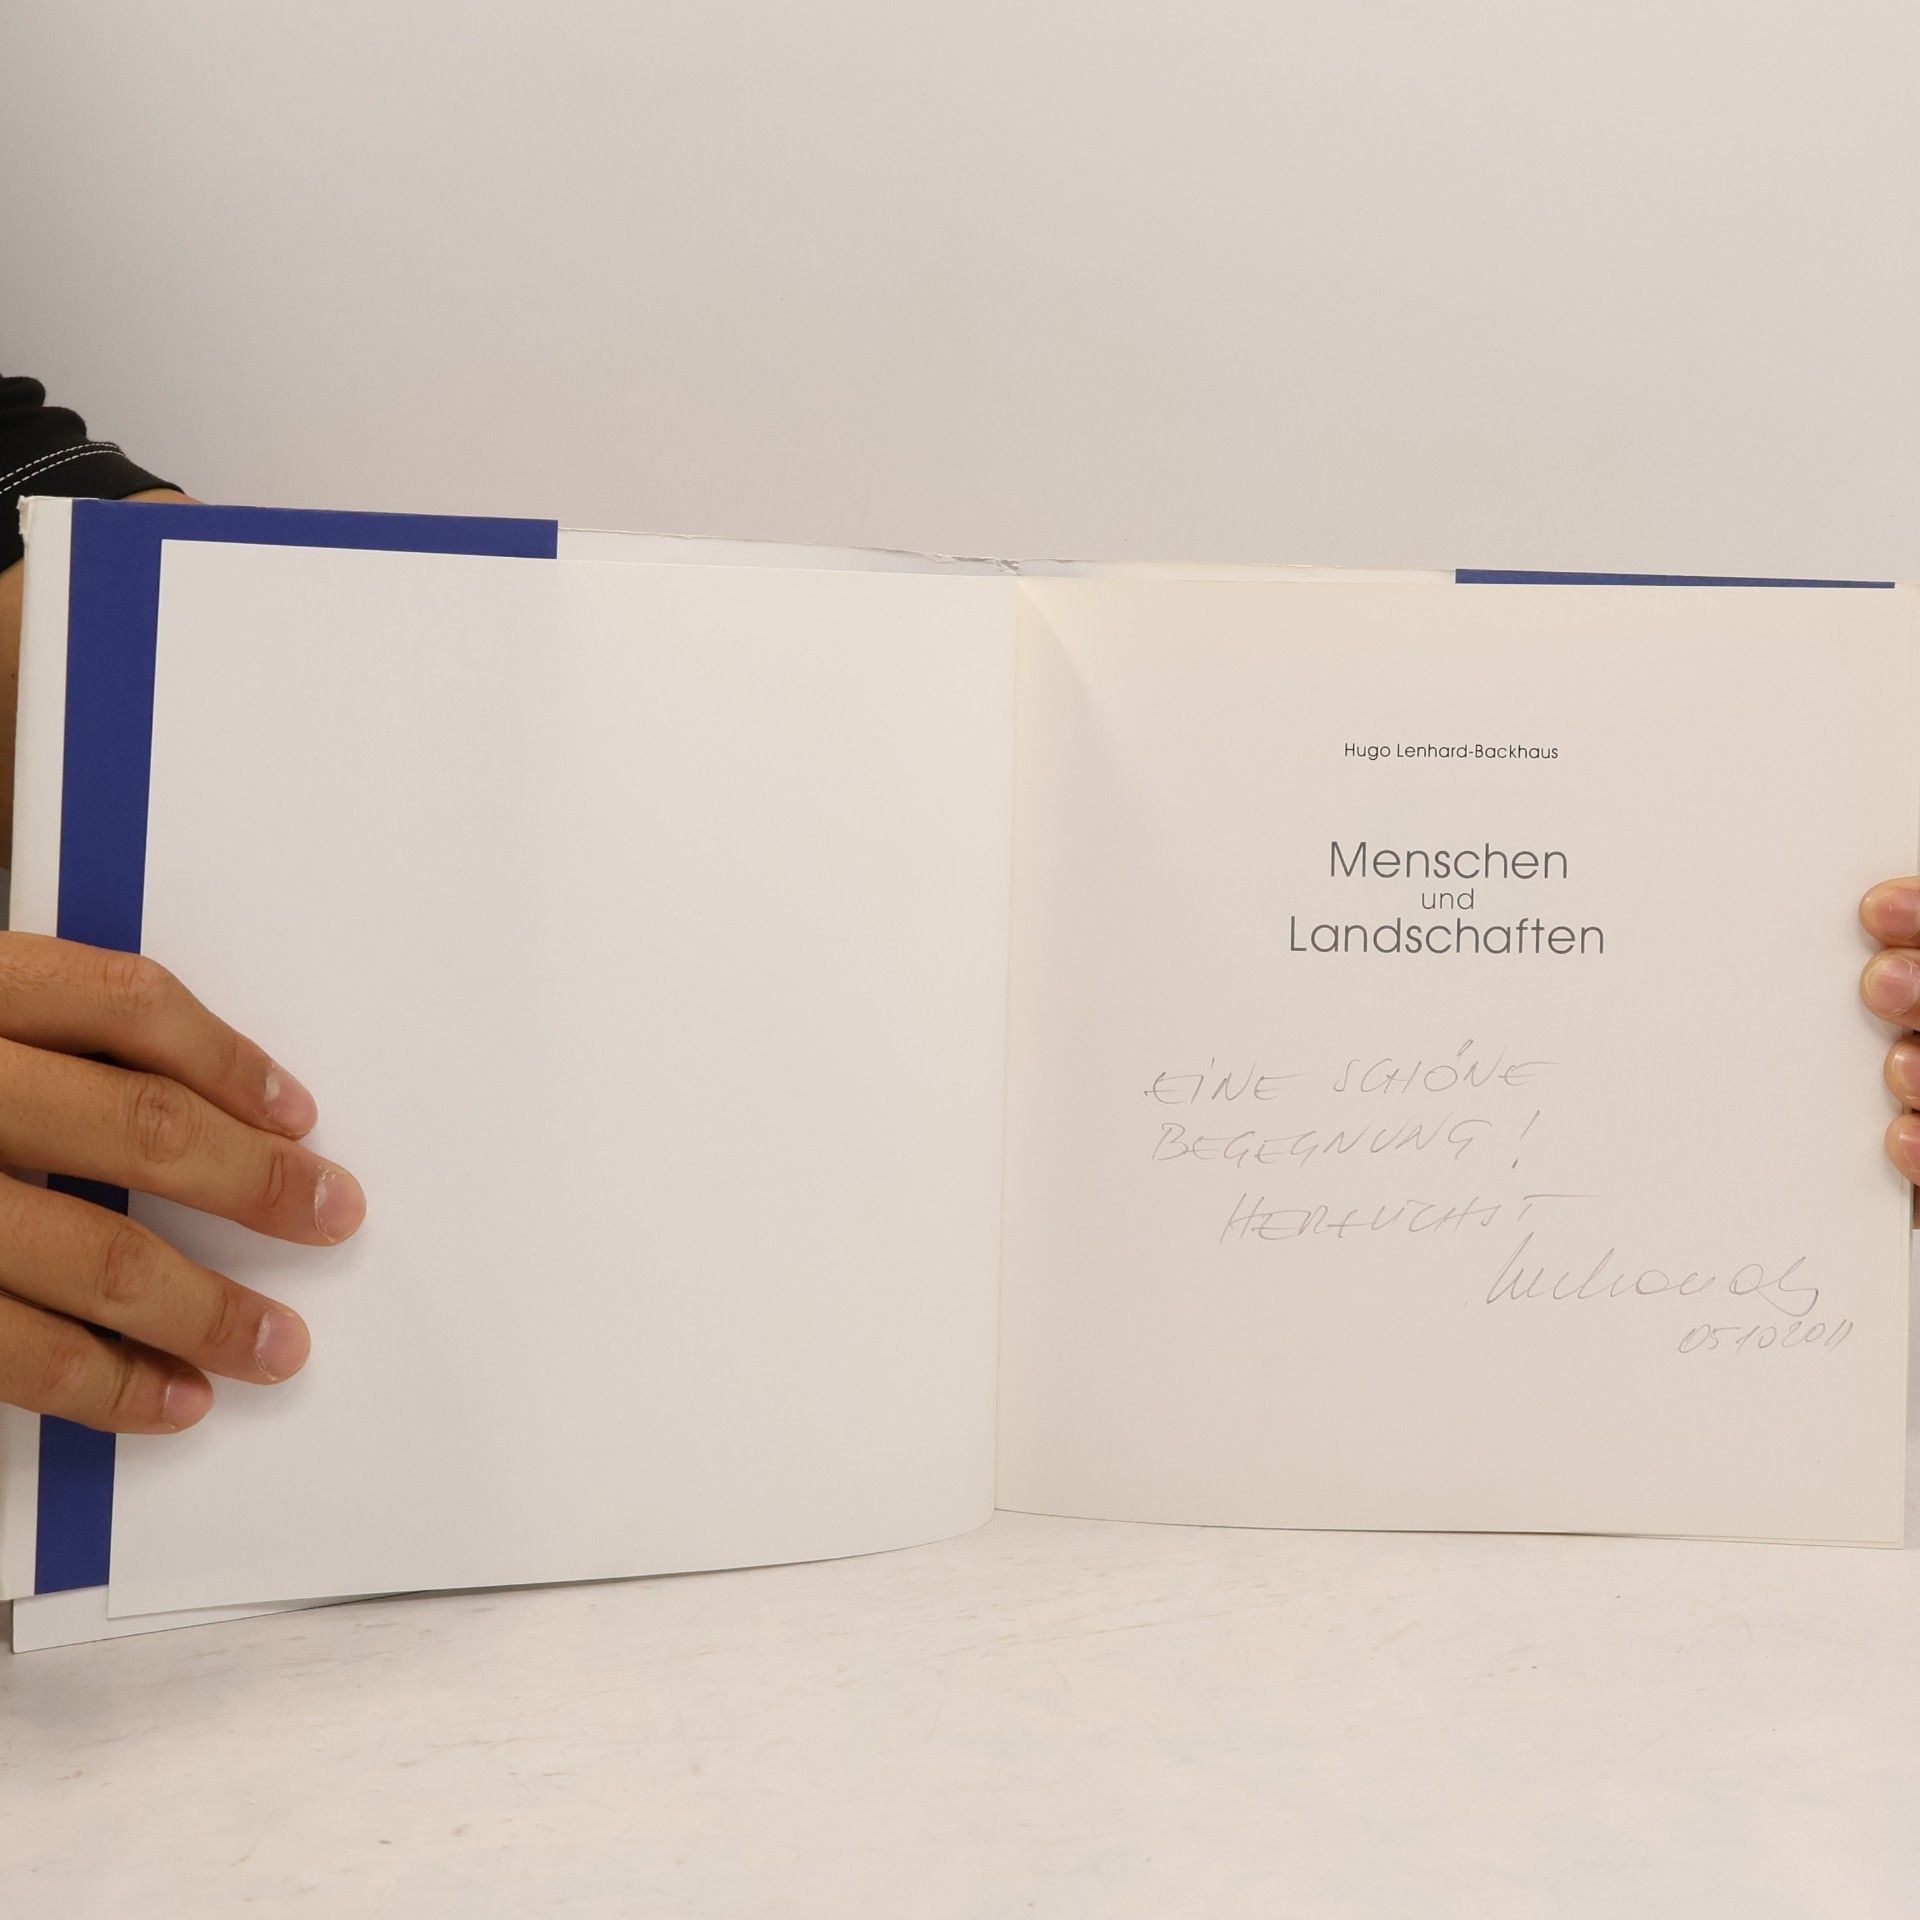 Hugo Lenhard-Backhaus
Menschen
und
Landschaften
EINE SCHÖNE
BEGEGNUNG!
HERZLICHST
05102011